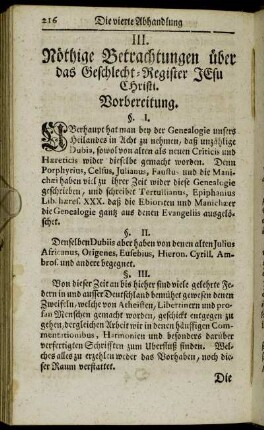 216 Die vierte Abhandlung
III.
Nöthige Betrachtungen über
das Geschlecht-Register JEsu
CHristi.
Vorbereitung.
§. I.
UBerhaupt hat man bey der Genealogie unsers
Heilandes in Acht zu nehmen, daß unzählige
Dubia, sowol von alten als neuen Criticis und
Hæreticis wider dieselbe gemacht worden. Denn
Porphyrius, Celsus, Julianus, Faustus und die Mani-
chæi haben viel zu ihrer Zeit wider diese Genealogie
geschrieben, und schreibet Tertullianus, Epiphanius
Lib. hæres. XXX. daß die Ebioniten und Manichæer
die Genealogie gantz aus denen Evangeliis ausgelö-
schet.
§. II.
Denselben Dubiis aber haben von denen alten Julius
Africanus, Origenes, Eusebius, Hieron. Cyrill. Am-
bros. und andere begegnet.
§. III.
Von dieser Zeit an bis hieher sind viele gelehrte Fe-
dern in und ausser Deutschland bemühet gewesen denen
Zweifeln, welche von Atheisten, Libertinern und pro-
fan Menschen gemacht worden, geschickt entgegen zu
gehen, dergleichen Arbeit wir in denen häuffigen Com-
mentationibus, Harmonien und besonders darüber
verfertigten Schrifften zum Uberfluß finden. Wel-
ches alles zu erzehlen weder das Vorhaben, noch die-
ser Raum verstattet.
Die